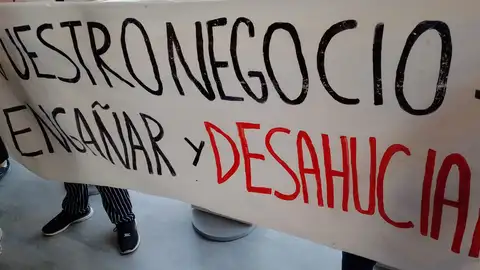 UESTRO NEGOCIO -
ENGAÑAR y DESAHUCIA